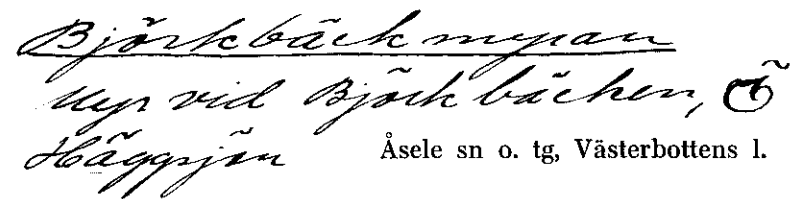 Björkbäckmyran
Myr vid Björkbäcken, Ö
Häggsjön Åsele sn o. tg, Västerbottens l.